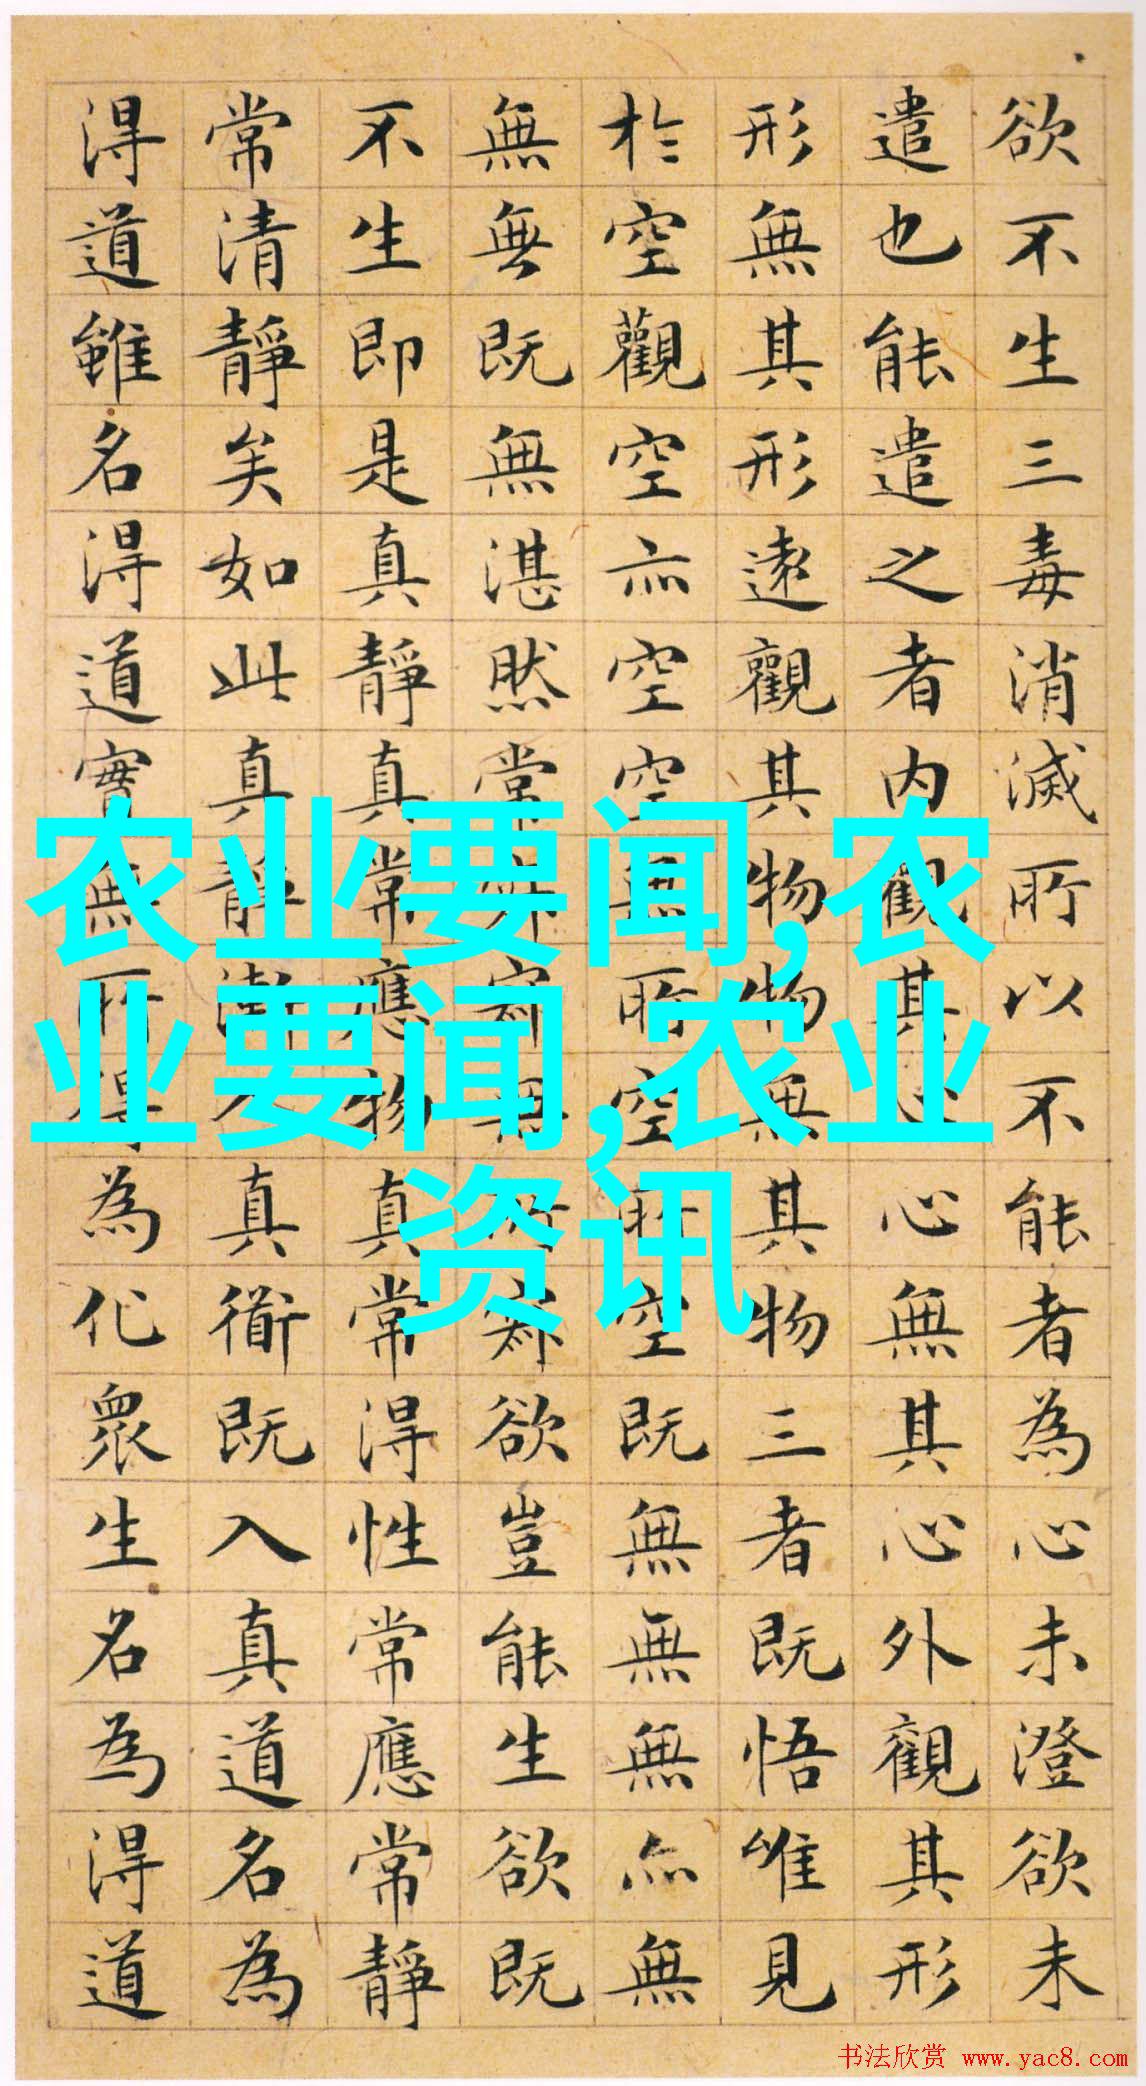 欲不生三毒消滅所以不能者為心未澄欲未
遣也能遣之者内觀其心心無其心外觀其形
形無其形遠觀其物物無其物三者既悟唯見
於空觀空亦空空無所空所空既無無無亦無
無無既無湛然常寂寂無所寂欲豈能生欲既
不生即是真靜真常應物真常得性常應常靜
常清靜矣如此真靜漸入真衜既入真道名為
得道雖名得道實無所得為化眾生名為得道
农业要闻,农
业要闻,农业
资讯
书法欣赏 www.yac8.com